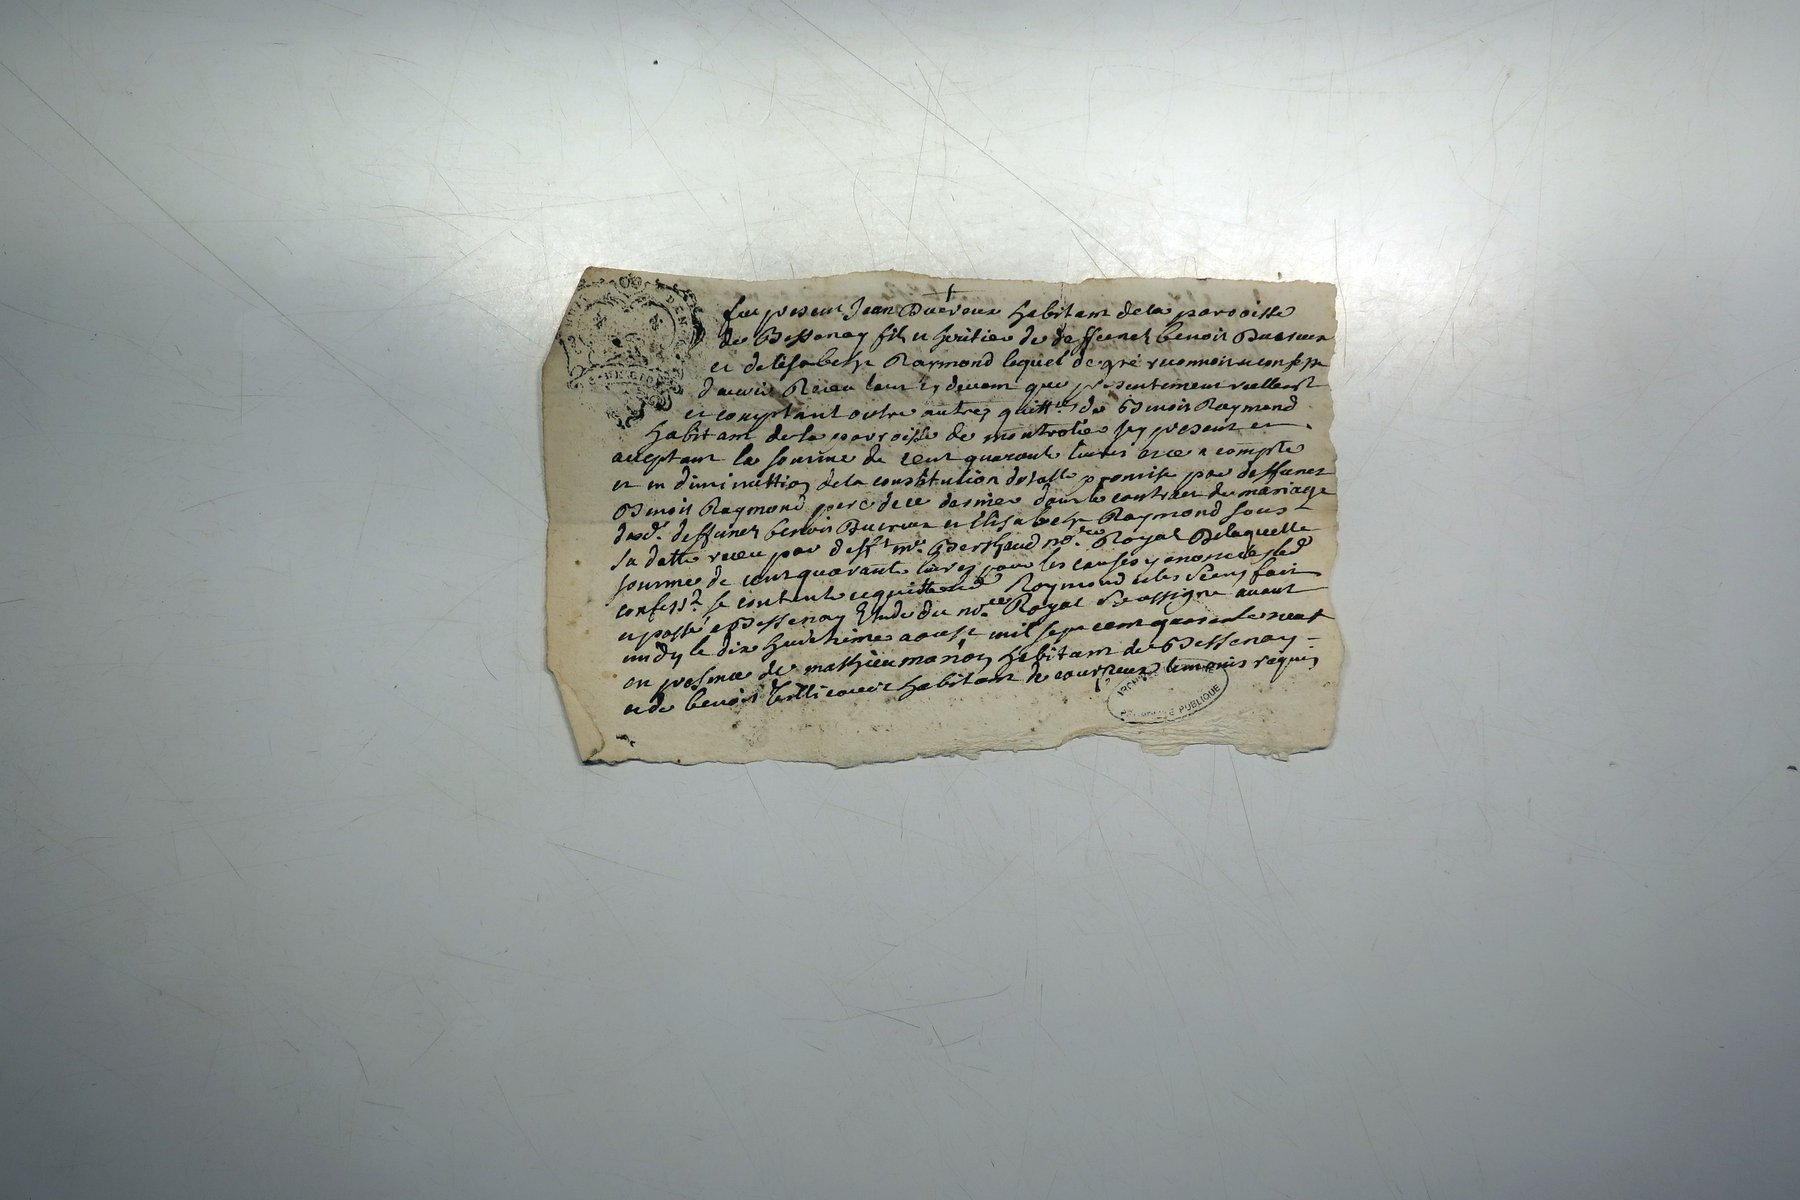 fut present Jean Duereux habitant de la parroisse
de Bessenay fils et heritier de deffunct benoit Duereux
et delisabeth Raymond lequel de gré reconnoit et confesse
davoir Receu tant cy devant que presentement reellement
et comptant outre autres quittes de Benoit Raymond
habitant de la parroisse de montrotier icy present et
acceptant la somme de cent quarante livres et ce a compte
et en diminuttion de la constitution dotalle promise par deffunct
Benoit Raymond pere de ce dernier dans le contract de mariage
desd. deffunct benoit Duereux et Elisabeth Raymond sous
sa datte receu par defft me. Berthaud nore Royal De laquelle
somme de cent quarante livres pour les causes y enoncées led
confess. se contente et quitte led Raymond et les siens fait
et passé a Bessenay Etude du nore Royal soussigné avant
midy le dix huitieme aoust mil sept cent quarante neuf
en presence de mathieu habitant de Bessenay
et de benoit habitant de courzieux temoins requis
PUBLIQUE